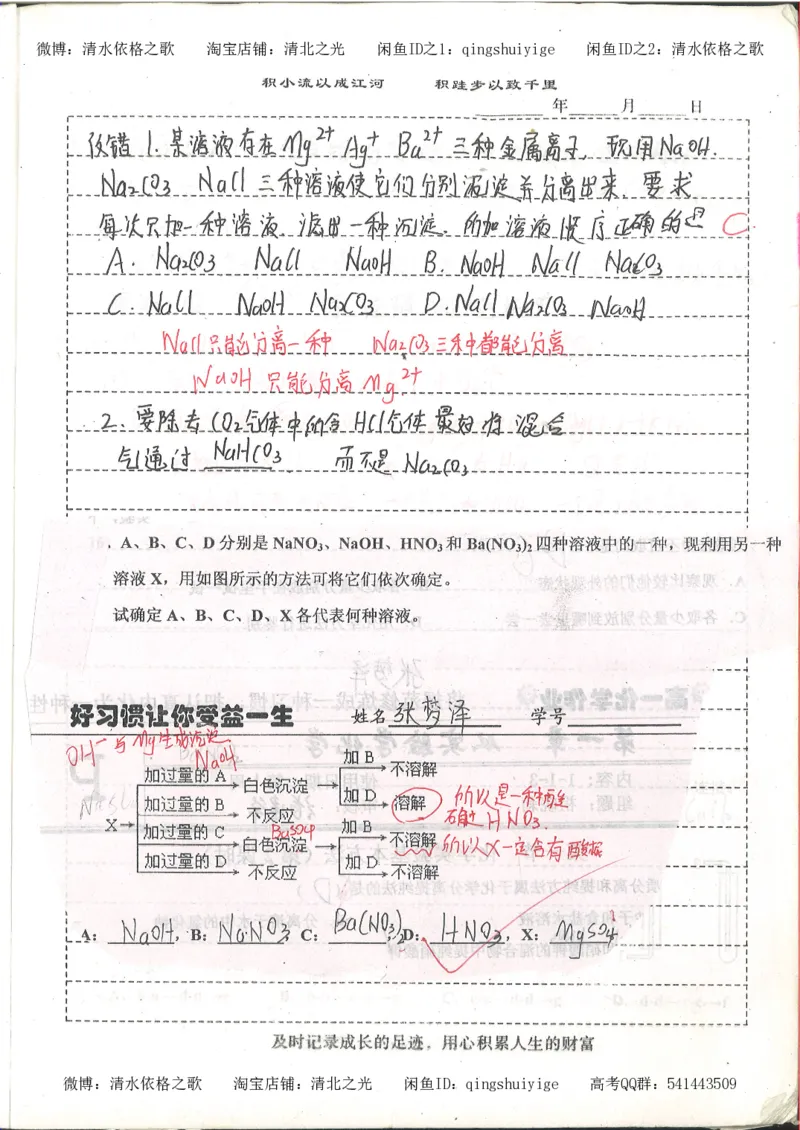 微博：清水依格之歌 淘宝店铺：清北之光 闲鱼ID之1：qingshuiyige 闲鱼ID之2：清水依格之歌
积小流以成江河 积跬步以致千里
年 月 日
1.某溶液存在Mg²⁺ Ag⁺ Ba²⁺ 三种金属离子，现用NaOH.
Na₂CO₃ NaCl 三种溶液使它们分别沉淀并分离出来，要求
每次只加一种溶液，滤出一种沉淀，所加溶液顺序正确的是 C
A. Na₂CO₃ NaCl NaOH B. NaOH NaCl Na₂CO₃
C. NaCl NaOH Na₂CO₃ D. NaCl Na₂CO₃ NaOH
NaCl只能分离一种 Na₂CO₃三种都能分离
NaOH 只能分离 Mg²⁺
2. 要除去CO₂气体中的含HCl气体最好将混合
气通过 NaHCO₃ 而不是 Na₂CO₃
. A、B、C、D分别是 NaNO₃、NaOH、HNO₃ 和 Ba(NO₃)₂ 四种溶液中的一种，现利用另一种
溶液 X，用如图所示的方法可将它们依次确定。
试确定 A、B、C、D、X 各代表何种溶液。
好习惯让你受益一生 姓名 张梦泽 学号
OH⁻与Mg生成沉淀
NaOH
加过量的 A 白色沉淀 加 B 不溶解
加 D 溶解 所以是一种酸
HNO₃.
加过量的 B 不反应
X
加过量的 C BaSO₄ 白色沉淀 加 B 不溶解 所以X一定含有
加 D 不溶解
加过量的 D 不反应
A: NaOH, B: NaNO₃, C: Ba(NO₃)₂, D: HNO₃, X: MgSO₄
及时记录成长的足迹，用心积累人生的财富
微博：清水依格之歌 淘宝店铺：清北之光 闲鱼ID：qingshuiyige 高考QQ群：541443509